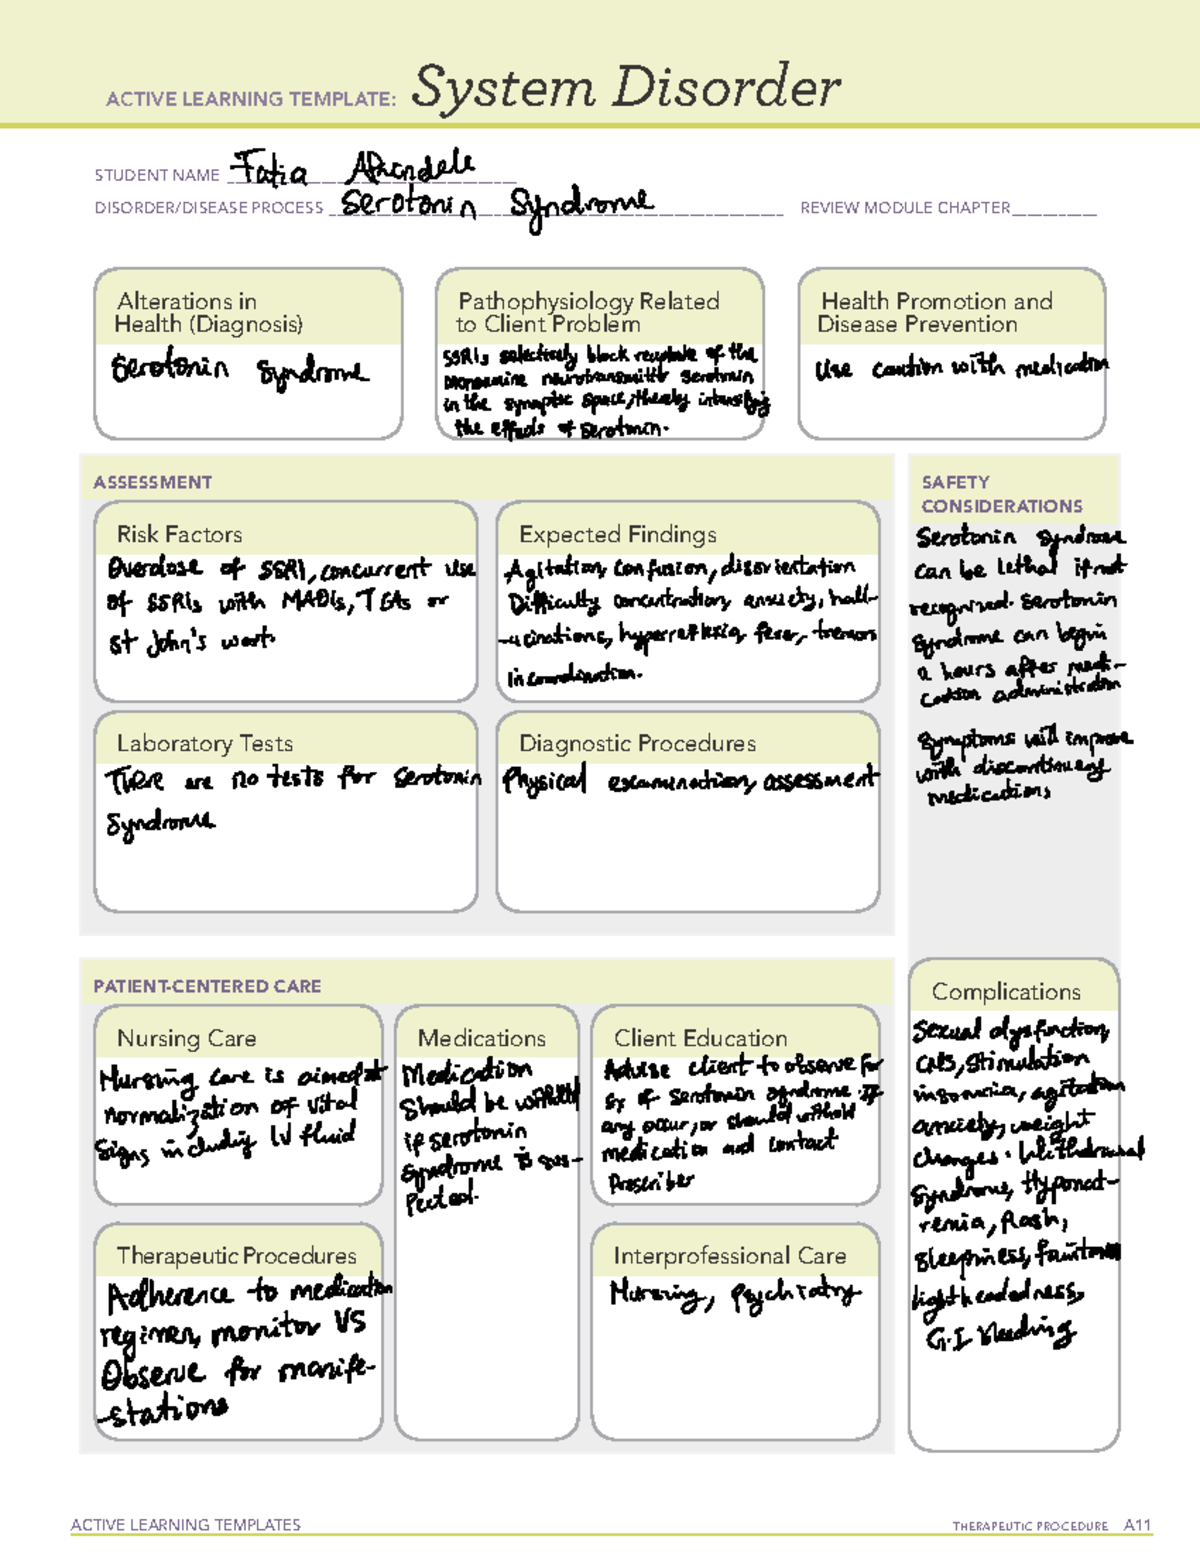 ACTIVE LEARNING TEMPLATE: System Disorder
STUDENT NAME Fatia
DISORDER/DISEASE PROCESS Serotonin Syndrome REVIEW MODULE CHAPTER
Alterations in
Health (Diagnosis)
Serotonin Syndrome
Pathophysiology Related
to Client Problem
SSRIs selectively block reuptake of the
monoamine neurotransmitter serotonin
in the synaptic space, thereby intensifying
the effects of serotonin.
Health Promotion and
Disease Prevention
Use caution with medication
ASSESSMENT
Risk Factors
Overdose of SSRI, concurrent use
of SSRIs with MAOIs, TCAs or
St John's wort.
Expected Findings
Agitation, confusion, disorientation
Difficulty concentration, anxiety, hall-
-ucinations, hyperreflexia, fever, tremors
incoordination.
Laboratory Tests
There are no tests for serotonin
Syndrome
Diagnostic Procedures
Physical examination, assessment
SAFETY
CONSIDERATIONS
Serotonin syndrome
can be lethal if not
recognized. Serotonin
Syndrome can begin
2 hours after medi-
cation administration
Symptoms will improve
with discontinuing
medications
PATIENT-CENTERED CARE
Nursing Care
Nursing care is aimed at
normalization of vital
signs including IV fluid
Medications
Medication
should be withheld
if serotonin
syndrome is sus-
pected.
Client Education
Advise client to observe for
Sx of serotonin syndrome if
any occur, or should withold
medication and contact
Prescriber
Therapeutic Procedures
Adherence to medication
regimen, monitor VS
Observe for manife-
-stations
Interprofessional Care
Nursing, Psychiatry
Complications
Sexual dysfunction,
CNS, Stimulation
insomnia, agitation
anxiety, weight
changes. Withdrawal
Syndrome, Hyponat-
remia, Rash,
Sleepiness, faintness
lightheadedness,
G.I bleeding
ACTIVE LEARNING TEMPLATES
THERAPEUTIC PROCEDURE A11